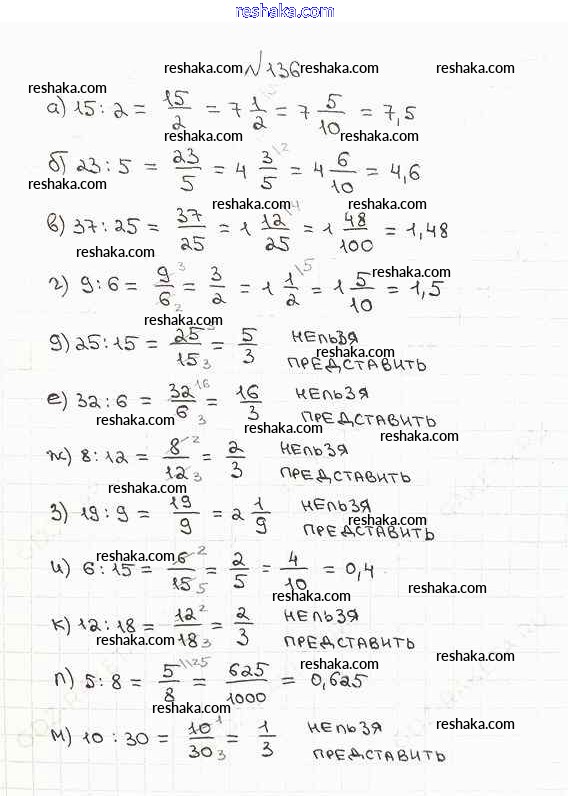 reshaka.com
reshaka.com №136 reshaka.com
reshaka.com reshaka.com reshaka.com
а) 15 : 2 = 15/2 = 7 1/2 = 7 5/10 = 7,5
reshaka.com
б) 23 : 5 = 23/5 = 4 3/5 \2 = 4 6/10 = 4,6
reshaka.com
reshaka.com reshaka.com
в) 37 : 25 = 37/25 = 1 12/25 \4 = 1 48/100 = 1,48
reshaka.com reshaka.com
reshaka.com
г) 9 : 6 = 9/6 3 2 = 3/2 = 1 1/2 \5 = 1 5/10 = 1,5
reshaka.com
д) 25 : 15 = 25/15 5 3 = 5/3 НЕЛЬЗЯ
reshaka.com
ПРЕДСТАВИТЬ
reshaka.com
е) 32 : 6 = 32/6 16 3 = 16/3 НЕЛЬЗЯ
ПРЕДСТАВИТЬ
reshaka.com reshaka.com
ж) 8 : 12 = 8/12 2 3 = 2/3 НЕЛЬЗЯ
ПРЕДСТАВИТЬ
reshaka.com
з) 19 : 9 = 19/9 = 2 1/9 НЕЛЬЗЯ
reshaka.com
ПРЕДСТАВИТЬ
reshaka.com
и) 6 : 15 = 6/15 2 5 = 2/5 = 4/10 = 0,4
reshaka.com
reshaka.com
к) 12 : 18 = 12/18 2 3 = 2/3 НЕЛЬЗЯ
reshaka.com ПРЕДСТАВИТЬ
reshaka.com
reshaka.com
л) 5 : 8 = 5/8 \125 = 625/1000 = 0,625
reshaka.com
м) 10 : 30 = 10/30 1 3 = 1/3 НЕЛЬЗЯ
reshaka.com
ПРЕДСТАВИТЬ
reshaka.com